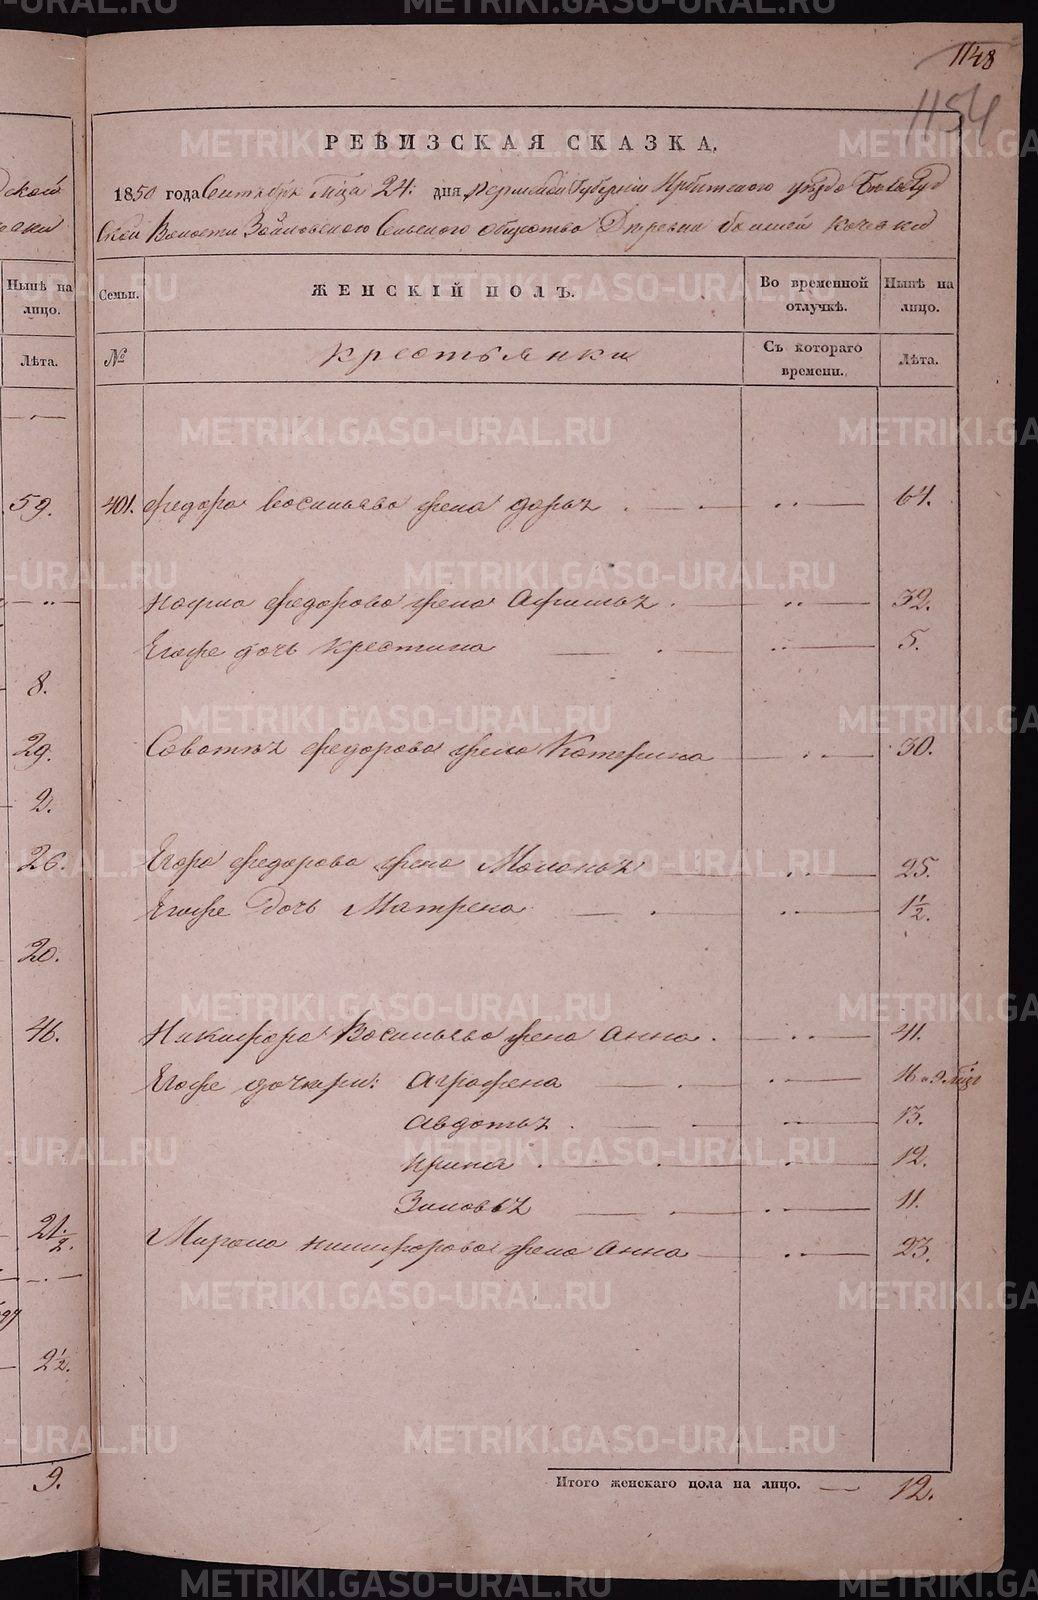 METRIKI.GASO-URAL.RU
1148
1154
РЕВИЗСКАЯ СКАЗКА.
1850 года Сентября Мца 24. дня Пермской Губернии Ирбитскаго уезда Белослуд
ской Волости Зайковскаго Сельскаго общества Деревни большей Кочевки
Нынѣ на лицо.
Семьи.
ЖЕНСКІЙ ПОЛЪ.
Во временной отлучкѣ.
Нынѣ на лицо.
Лѣта.
№
Крестьянки
Съ котораго времени.
Лѣта.
59. 401. Федора Васильева жена Дарья 64.
Наума Федорова жена Афимья 32.
Егоже дочь Крестина 5.
8.
29. Саватея Федорова жена Катерина 30.
2.
26. Егора Федорова жена Маланья 25.
Егоже Дочь Матрена 1 1/2.
20.
46. Никифора Васильева жена Анна 41.
Егоже дочкери: Аграфена 16 и 9 Мцъ
Авдотья 13.
Ирина 12.
Зиновья 11.
21 1/2. Мирона Никифорова жена Анна 23.
2 1/2.
9. Итого женскаго пола на лицо. 12.